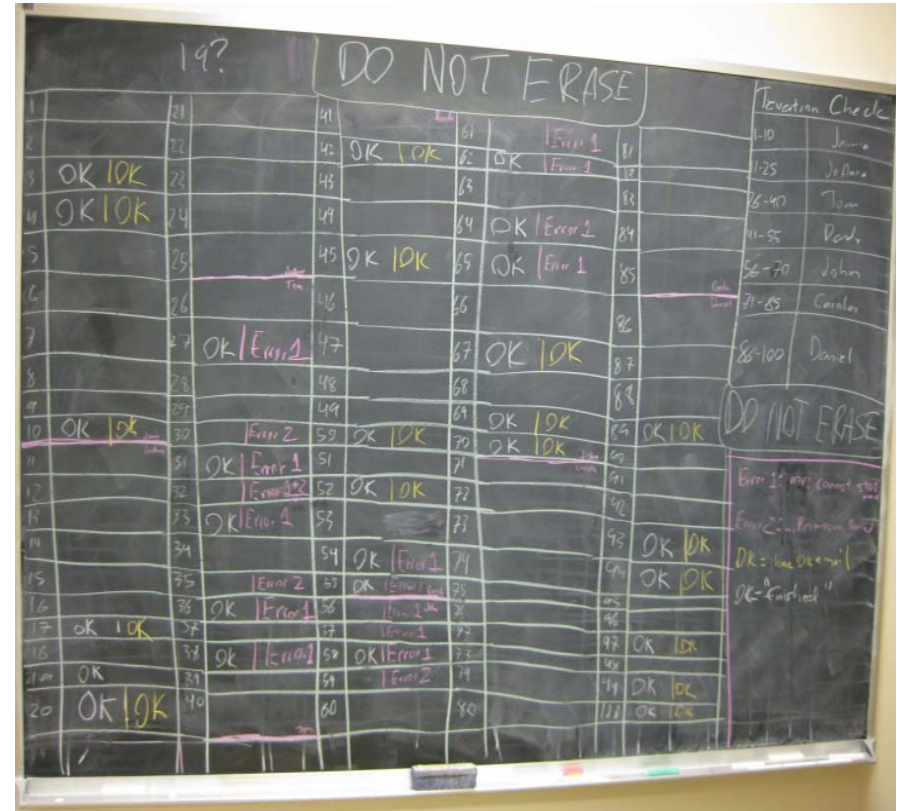 19?
DO NOT ERASE
1
2
3 OK | OK
4 OK | OK
5
6
7
8
9
10 OK | OK
11
12
13
14
15
16
17 OK | OK
18
19 OK
20 OK | OK
21
22
23
24
25
Tom
26
27 OK | Error 1
28
29
30 | Error 2
31 OK | Error 1
32 | Error 1+2
33 OK | Error 1
34
35 | Error 2
36 OK | Error 1
37
38 OK | Error 1
39
40
Tom
41
42 OK | OK
43
44
45 OK | OK
46
47
48
49
50 OK | OK
51
52 OK | OK
53
54 OK | Error 1
55 OK | Error 1
56 | Error 1
57 | Error 1
58 OK | Error 1
59 | Error 2
60
61 | Error 1
62 OK | Error 1
63
64 OK | Error 1
65 OK | Error 1
66
67 OK | OK
68
69 OK | OK
70 OK | OK
71
72
73
74
75
76
77
78
79
80
81
82
83
84
85
Daniel
86
87
88
89 OK | OK
90
91
92
93 OK | OK
94 OK | OK
95
96
97 OK | OK
98
99 OK | OK
100 OK | OK
Check
1-10
1-25
26-40 Tom
41-55
56-70 John
71-85
86-100 Daniel
DO NOT ERASE
Error 1: cannot stat
Error 2:
OK = OK email
OK = "finished"